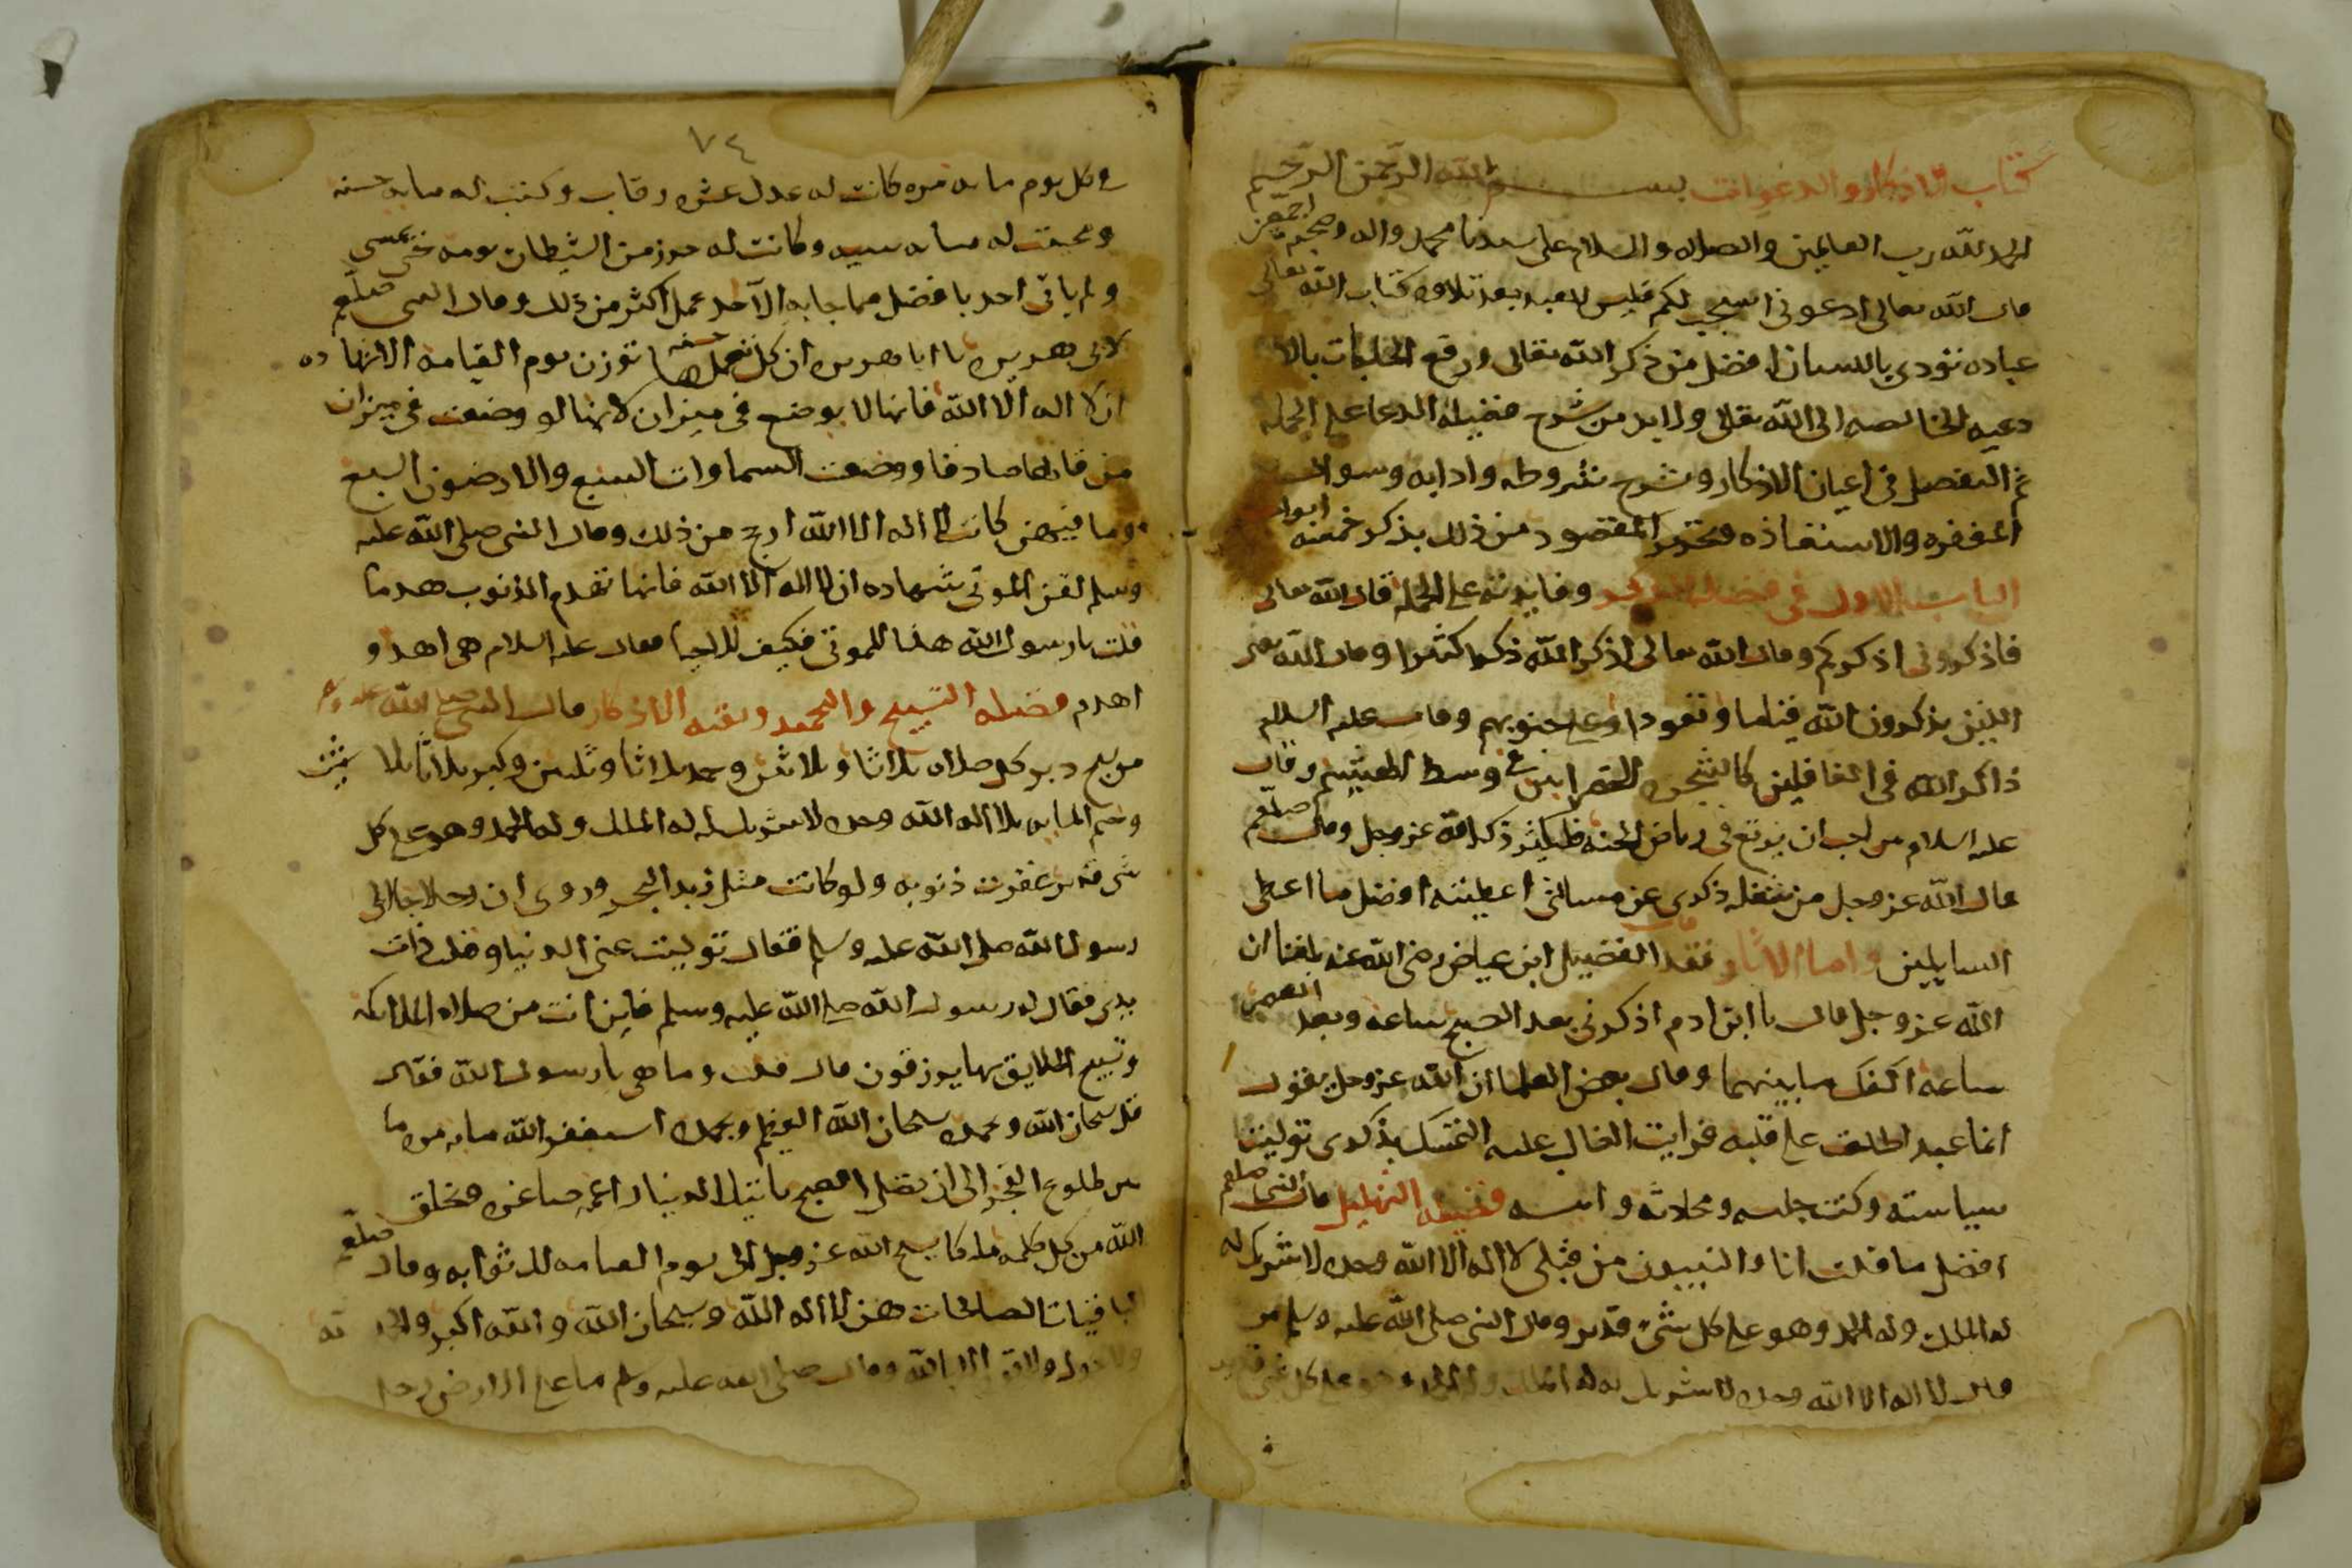 كتاب الاذكار والدعوات بسم الله الرحمن الرحيم
الحمد لله رب العالمين والصلاه والسلام على سيدنا محمد واله وصحبه اجمعين
قال الله تعالى ادعوني استجب لكم فليس بعد تلاوه كتاب الله تعالى
عباده تؤدى باللسان افضل من ذكر الله تعالى ورفع الحاجات بالا
دعيه الخالصه الى الله تعالى ولا بد من شرح فضيله الدعا على الجمله
ثم التفصيل في اعيان الاذكار وشرح شروطه وادابه وسوال
المغفره والاستعاذه المقصود من ذلك بذكر خمسه ابواب
الباب الاول في فضيله الذكر وفايدته على الجمله قال الله تعالى
فاذكروني اذكركم وقال الله تعالى اذكروا الله ذكرا كثيرا وقال الله تعالى
الذين يذكرون الله قياما وقعودا وعلى جنوبهم وقال عليه السلام
ذاكر الله في الغافلين كالشجره الخضرا في وسط الهشيم وقال
عليه السلام من احب ان يرتع في رياض الجنه فليكثر ذكر الله عز وجل وقال صلعم
قال الله عز وجل من شغله ذكري عن مسالتي اعطيته افضل ما اعطي
السايلين واما الاثار فقد قال الفضيل ابن عياض رضي الله عنه بلغنا ان
الله عز وجل قال يا ابن ادم اذكرني بعد الصبح ساعه وبعد العصر
ساعه اكفك ما بينهما وقال بعض العلما ان الله عز وجل يقول
ايما عبد اطلعت على قلبه فرايت الغالب عليه التمسك بذكري توليت
سياسته وكنت جليسه ومحادثه وانيسه فضيله التهليل قال النبي صلعم
افضل ما قلت انا والنبييون من قبلي لا اله الا الله وحده لا شريك له
له الملك وله الحمد وهو على كل شيء قدير وقال النبي صلى الله عليه وسلم من
قال لا اله الا الله وحده لا شريك له له الملك وله الحمد وهو على كل شي قدير
٧٤
في كل يوم مايه مره كانت له عدل عشر رقاب وكتبت له مايه حسنه
ومحيت له مايه سييه وكانت له حرز من الشيطان يومه حتى يمسي
ولم ياتي احد بافضل مما جا به الا احد عمل اكثر من ذلك وقال النبي صلعم
لابي هريره يا ابا هريره ان كل حسنه تعملها توزن يوم القيامه الا شهاده
ان لا اله الا الله فانها لا توضع في ميزان لانها لو وضعت في ميزان
من قالها صادقا ووضعت السماوات السبع والارضون السبع
وما فيهن كانت لا اله الا الله ارجح من ذلك وقال النبي صلى الله عليه
وسلم لقن الموتى شهاده ان لا اله الا الله فانها تهدم الذنوب هدما
قلت يا رسول الله هذا للموتى فكيف للاحيا فقال عليه السلام هي اهدم و
اهدم فضيله التسبيح والتحميد وبقيه الاذكار قال النبي صلى الله عليه وسلم
من سبح دبر كل صلاه ثلاثا وثلاثين وحمد ثلاثا وثلثين وكبر ثلاثا وثلاثين
وختم المايه بلا اله الا الله وحده لا شريك له له الملك وله الحمد وهو على كل
شي قدير غفرت ذنوبه ولو كانت مثل زبد البحر وروى ان رجلا جا الى
رسول الله صلى الله عليه وسلم فقال توليت عني الدنيا وقلت ذات
يدي فقال له رسول الله صلى الله عليه وسلم فاين انت من صلاه الملايكه
وتسبيح الخلايق بها يرزقون قال قلت وما هي يا رسول الله فقال
قل سبحان الله وبحمده سبحان الله العظيم وبحمده استغفر الله مايه مره ما
بين طلوع الفجر الى ان تصلي الصبح تاتيك الدنيا راغمه صاغره ويخلق
الله من كل كلمه ملكا يسبح الله عز وجل الى يوم القيامه لك ثوابه وقال صلعم
الباقيات الصالحات هن لا اله الا الله وسبحان الله والله اكبر والحمد لله
ولا حول ولا قوه الا بالله وقال صلى الله عليه وسلم ما على الارض رجل